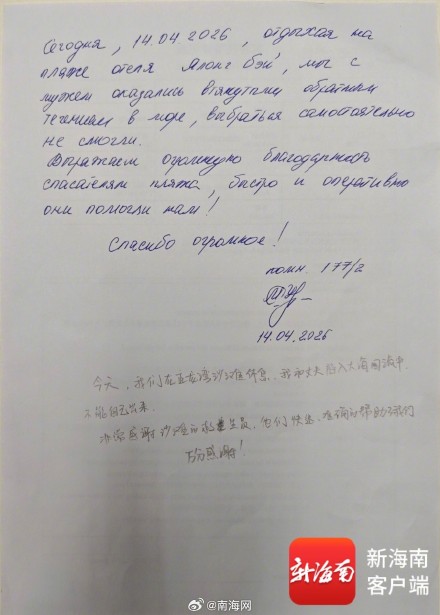 Сегодня, 14.04.2026, отдыхая на
пляже отеля Ялонг Бэй, мы с
мужем оказались втянутыми обратным
течением в море, выбраться самостоятельно
не смогли.
Выражаем огромную благодарность
спасателям пляжа, быстро и оперативно
они помогли нам!
Спасибо огромное!
комн. 177/2
14.04.2026
今天，我们在亚龙湾沙滩休息，我和丈夫卷入大海回流中
不能自己出来。
非常感谢沙滩的救生员，他们快速、准确的帮助了我们
万分感谢！
新海南
新海南
客户端
@南海网